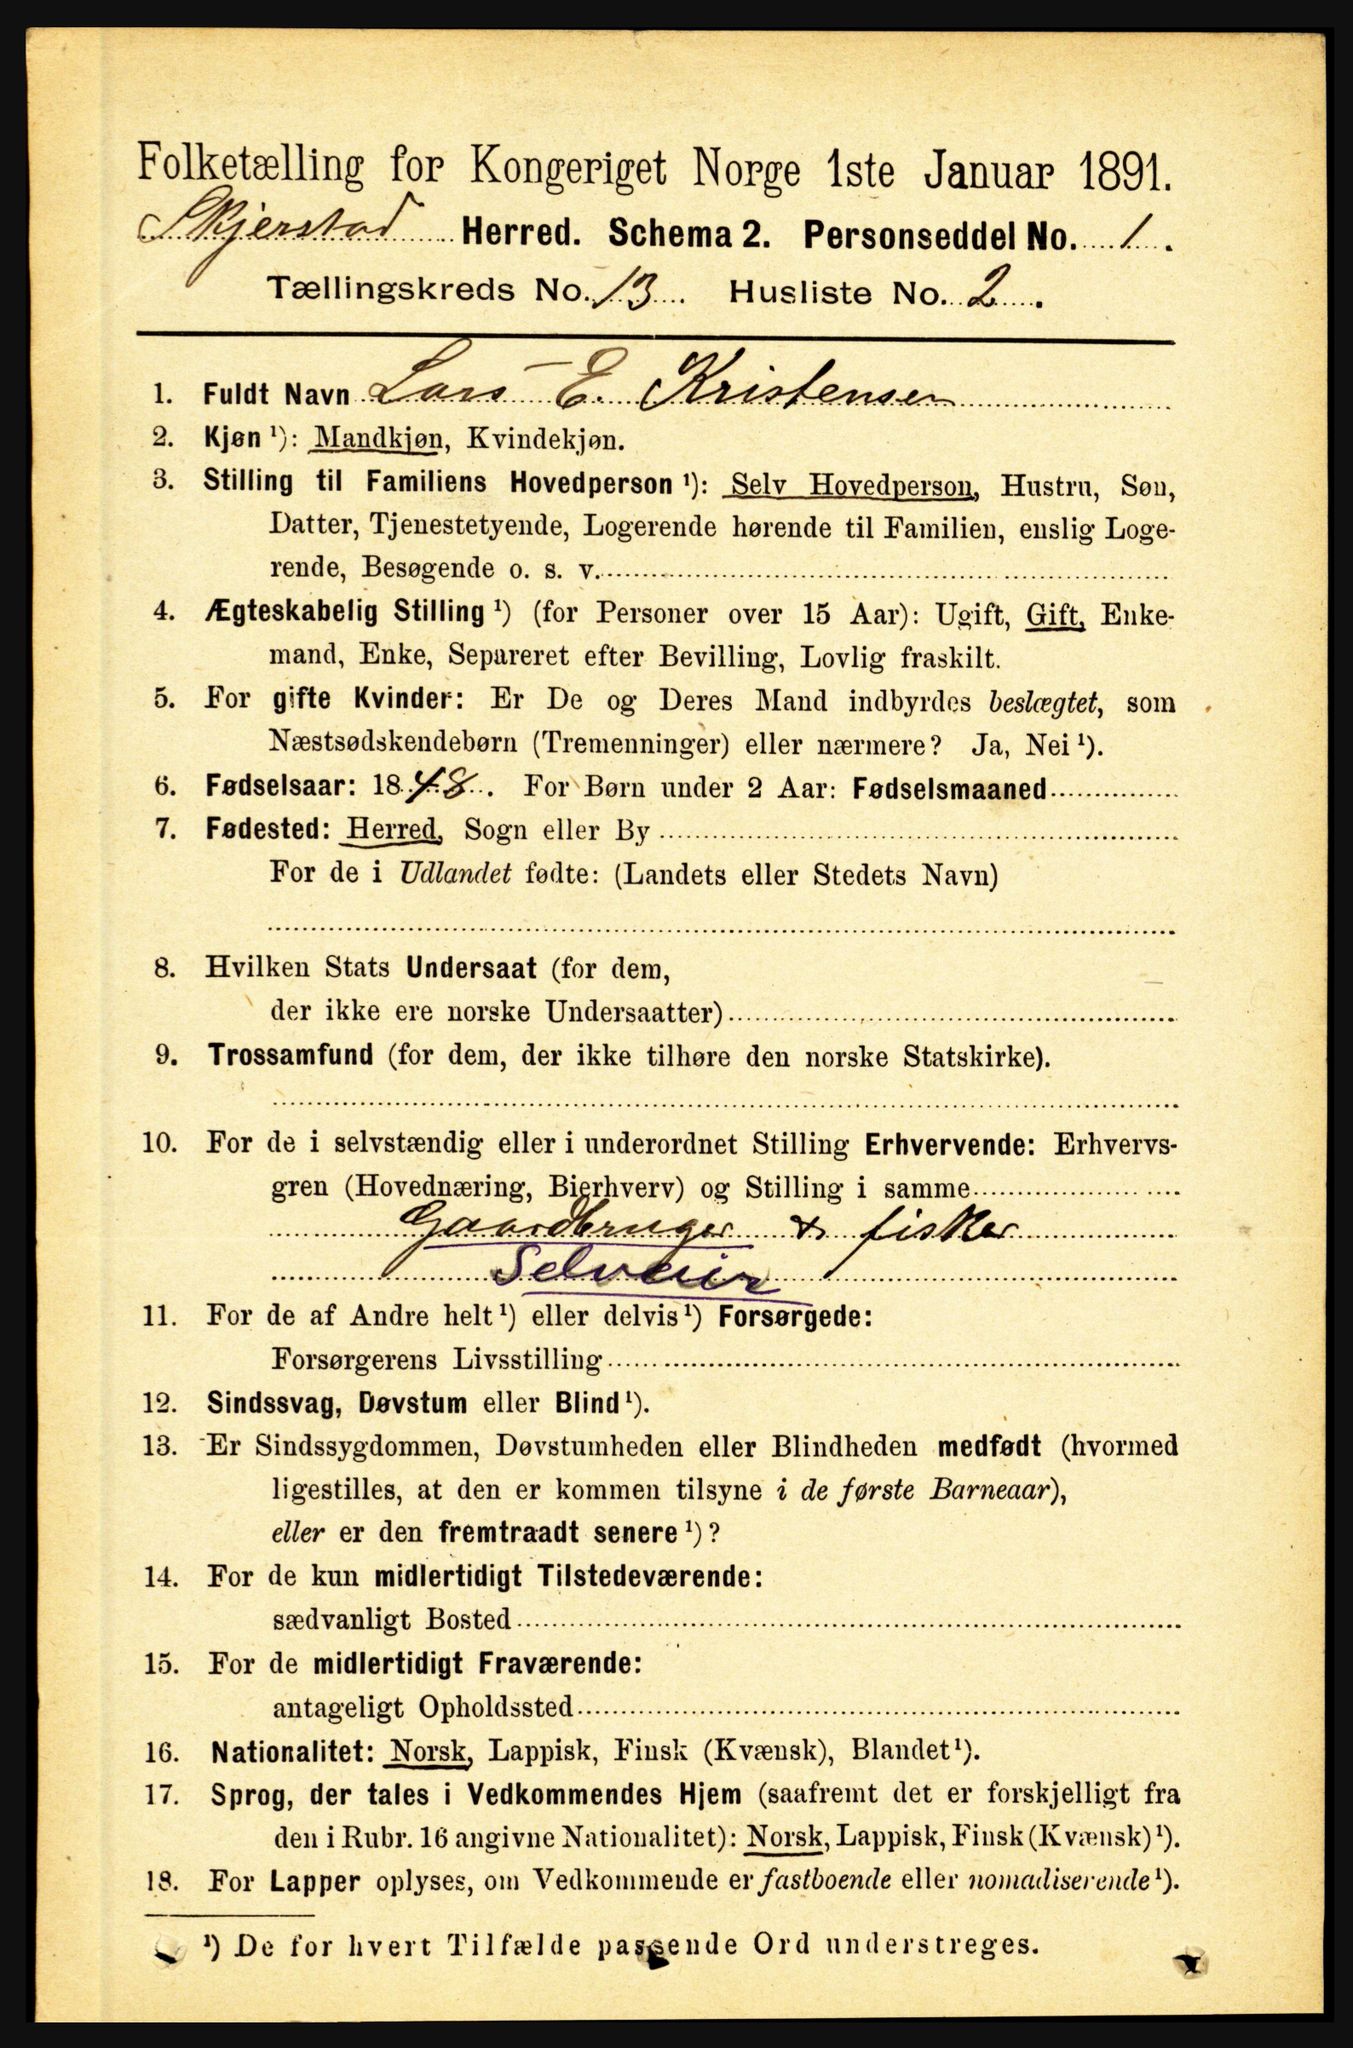 Folketælling for Kongeriget Norge 1ste Januar 1891.
Skjerstad Herred. Schema 2. Personseddel No. 1.
Tællingskreds No. 13. Husliste No. 2.
1. Fuldt Navn Lars E. Kristensen
2. Kjøn ¹): Mandkjøn, Kvindekjøn.
3. Stilling til Familiens Hovedperson ¹): Selv Hovedperson, Hustru, Søn,
Datter, Tjenestetyende, Logerende hørende til Familien, enslig Loge-
rende, Besøgende o. s. v.
4. Ægteskabelig Stilling ¹) (for Personer over 15 Aar): Ugift, Gift, Enke-
mand, Enke, Separeret efter Bevilling, Lovlig fraskilt.
5. For gifte Kvinder: Er De og Deres Mand indbyrdes beslægtet, som
Næstsødskendebørn (Tremenninger) eller nærmere? Ja, Nei ¹).
6. Fødselsaar: 1848. For Børn under 2 Aar: Fødselsmaaned
7. Fødested: Herred, Sogn eller By
For de i Udlandet fødte: (Landets eller Stedets Navn)
8. Hvilken Stats Undersaat (for dem,
der ikke ere norske Undersaatter)
9. Trossamfund (for dem, der ikke tilhøre den norske Statskirke).
10. For de i selvstændig eller i underordnet Stilling Erhvervende: Erhvervs-
gren (Hovednæring, Bierhverv) og Stilling i samme
Gaardbruger & fisker
Selveier
11. For de af Andre helt ¹) eller delvis ¹) Forsørgede:
Forsørgerens Livsstilling
12. Sindssvag, Døvstum eller Blind ¹).
13. Er Sindssygdommen, Døvstumheden eller Blindheden medfødt (hvormed
ligestilles, at den er kommen tilsyne i de første Barneaar),
eller er den fremtraadt senere ¹)?
14. For de kun midlertidigt Tilstedeværende:
sædvanligt Bosted
15. For de midlertidigt Fraværende:
antageligt Opholdssted
16. Nationalitet: Norsk, Lappisk, Finsk (Kvænsk), Blandet ¹).
17. Sprog, der tales i Vedkommendes Hjem (saafremt det er forskjelligt fra
den i Rubr. 16 angivne Nationalitet): Norsk, Lappisk, Finsk (Kvænsk) ¹).
18. For Lapper oplyses, om Vedkommende er fastboende eller nomadiserende ¹).
¹) De for hvert Tilfælde passende Ord understreges.